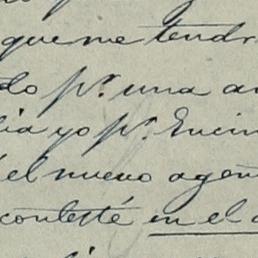 que me tendr
do pr. una a
lia yo pr. Encin
el nuevo agen
contesté en el